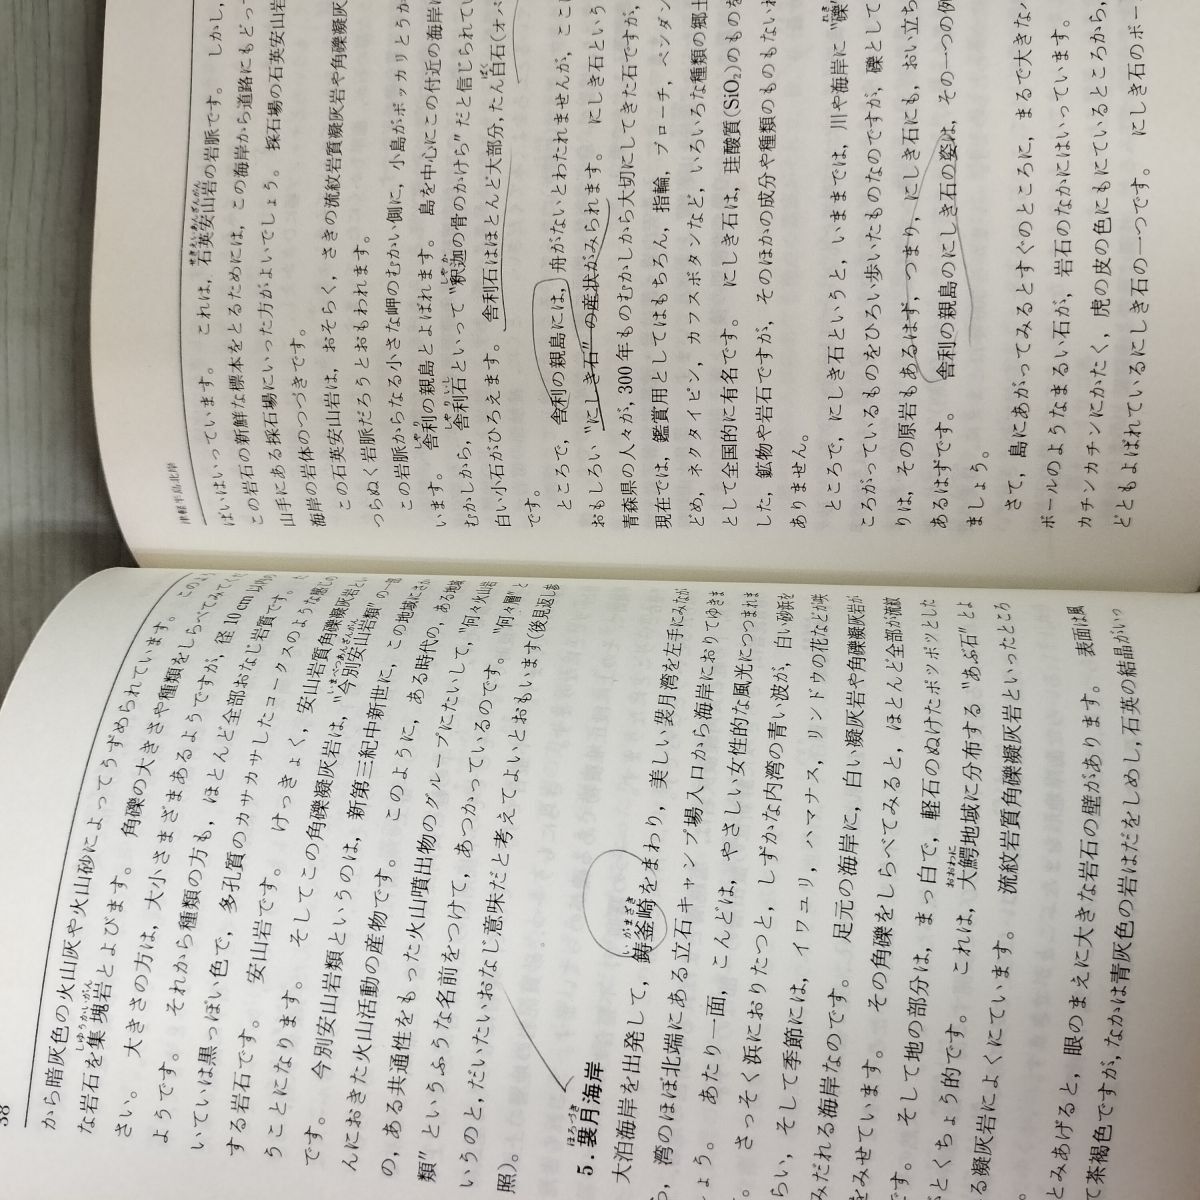 38
から暗灰色の火山灰や火山砂によってうずめられています。 このよう
な岩石を集塊岩とよびます。 角礫の大きさや種類をしらべてみてくだ
さい。 大きさの方は，大小さまざまあるようですが，径10cm以内の
ようです。 それから種類の方も，ほとんど全部おなじ岩質です。
いていは黒っぽい色で，多孔質のカサカサしたコークスのような感じの
する岩石です。 安山岩です。 けっきょく，安山岩質角礫凝灰岩とい
うことになります。 そしてこの角礫凝灰岩は，“今別安山岩類”の一部
です。 今別安山岩類というのは，新第三紀中新世に，この地域にさか
んにおきた火山活動の産物です。 このように，ある時代の，ある地域
の，ある共通性をもった火山噴出物のグループにたいして，“何々火山岩
類”というふうな名前をつけて，あつかっているのです。 “何々層”と
いうのと，だいたいおなじ意味だと考えてよいとおもいます(後見返し参
照)。
5. 袰月海岸
大泊海岸を出発して，鋳釜崎をまわり，美しい袰月湾を左手にみなが
ら，湾のほぼ北端にある立石キャンプ場入口から海岸におりてゆきま
しょう。 あたり一面，こんどは，やさしい女性的な風光につつまれま
。 さっそく浜におりたつと，しずかな内湾の青い波が，白い砂浜を
らい，そして季節には，イワユリ，ハマナス，リンドウの花などが咲
みだれる海岸なのです。 足元の海岸に，白い凝灰岩や角礫凝灰岩が
をみせています。 その角礫をしらべてみると，ほとんど全部が流紋
です。 そして地の部分は，まっ白で，軽石のぬけたボツボツとした
がとくちょう的です。 これは，大鰐地域に分布する“あぶ石”とよ
る凝灰岩によくにています。 流紋岩質角礫凝灰岩といったところ
とみあげると，眼のまえに大きな岩石の壁があります。 表面は風
て茶褐色ですが，なかは青灰色の岩はだをしめし，石英の結晶がいっ
津軽半島北岸
ばいはいっています。 これは，石英安山岩の岩脈です。 しかし，
この岩石の新鮮な標本をとるためには，この海岸から道路にもどっ
山手にある採石場にいった方がよいでしょう。 採石場の石英安山岩
海岸の岩体のつづきです。
この石英安山岩は，おそらく，さきの流紋岩質凝灰岩や角礫凝灰
つらぬく岩脈だろうとおもわれます。
この岩脈からなる小さな岬のむかい側に，小島がポッカリとうか
います。 舎利の親島とよばれます。 島を中心にこの付近の海岸に
むかしから，舎利石といって“釈迦の骨のかけら”だと信じられてい
白い小石がひろえます。 舎利石はほとんど大部分，たん白石(オパ
です。
ところで，舎利の親島には，舟がないとわたれませんが，ここに
おもしろい“にしき石”の産状がみられます。 にしき石という
青森県の人々が，300年ものむかしから大切にしてきた石ですが，
現在では，鑑賞用としてはもちろん，指輪，ブローチ，ペンダン
どめ，ネクタイピン，カフスボタンなど，いろいろな種類の郷土
として全国的に有名です。 にしき石は，珪酸質(SiO₂)のものを
した，鉱物や岩石ですが，そのほかの成分や種類のものもないわ
ありません。
ところで，にしき石というと，いままでは，川や海岸に“礫”
ころがっているものをひろい歩いたものなのですが，礫として
りは，その原岩もあるはず，つまり，にしき石にも，おい立ち
あるはずです。 舎利の親島のにしき石の姿は，その一つの例
ましょう。
さて，島にあがってみるとすぐのところに，まるで大きなバ
ボールのようなまるい石が，岩石のなかにはいっています。
カチンカチンにかたく，虎の皮の色にもにているところから，
どともよばれているにしき石の一つです。 にしき石のボー